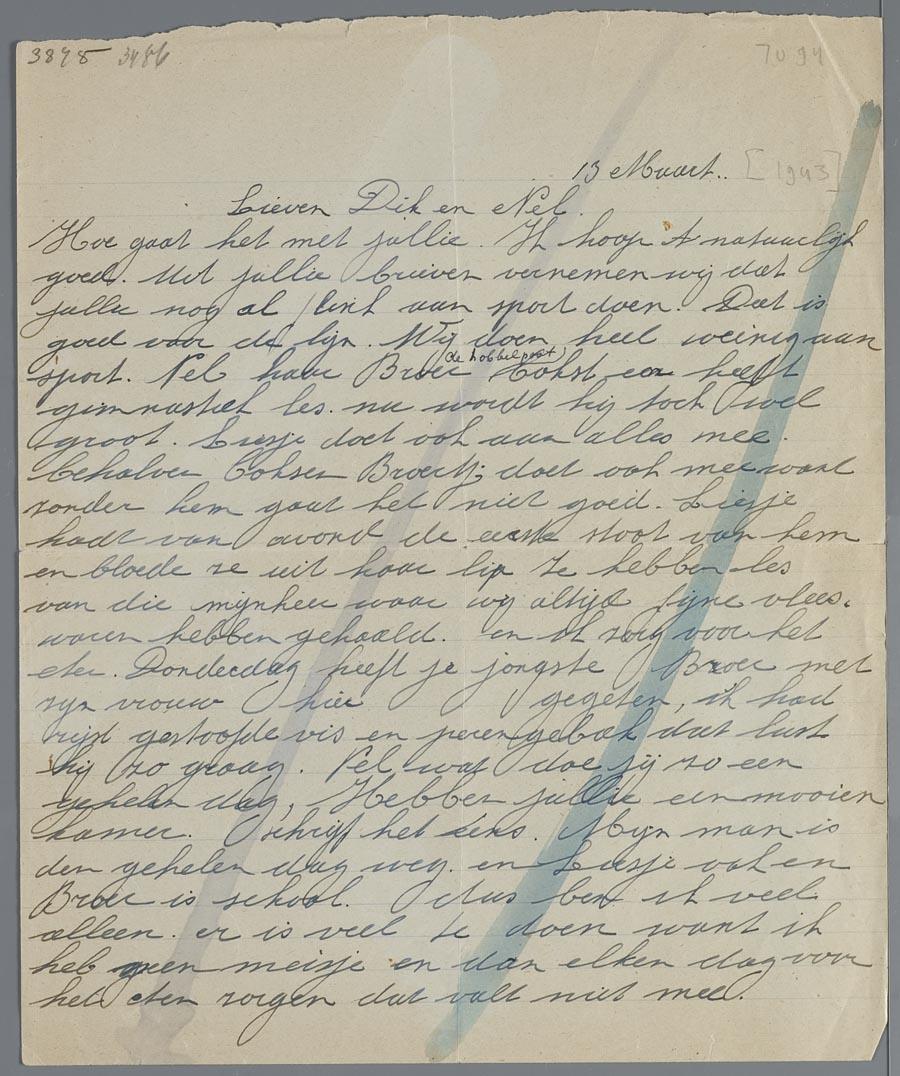 3875 3486 7094
13 Maart.. [1943]
Lieven Dik en Nel.
Hoe gaat het met jullie. Ik hoop natuurlijk
goed. Uit jullie brieven vernemen wij dat
jullie nog al flink aan sport doen. Dat is
goed voor de lijn. Wij doen heel weinig aan
de hobbelpaat)
sport. Nel haar Broer bokst en heeft
gimnastiek les. nu wordt hij toch wel
groot. Liesje doet ook aan alles mee.
behalven boksen Broertj doet ook mee want
zonder hem gaat het niet goed. Liesje
hadt van avond de eerste stoot van hem
en bloede ze uit haar lip ze hebben les
van die mijnheer waar wij altijd fijne vlees.
waren hebben gehaald. en ik zorg voor het
eten. Donderdag heeft je jongste Broer met
zijn vrouw hier gegeten, ik had
rijst gestoofde vis en perengebak dat lust
hij zo graag. Nel wat doe jij zo een
gehelen dag, Hebben jullie een mooien
kamer. schrijf het eens. Mijn man is
den gehelen dag weg. en Liesje ook en
Broer is school. dus ben ik veel
alleen. er is veel te doen want ik
heb geen meisje en dan elken dag voor
het eten zorgen dat valt niet mee.